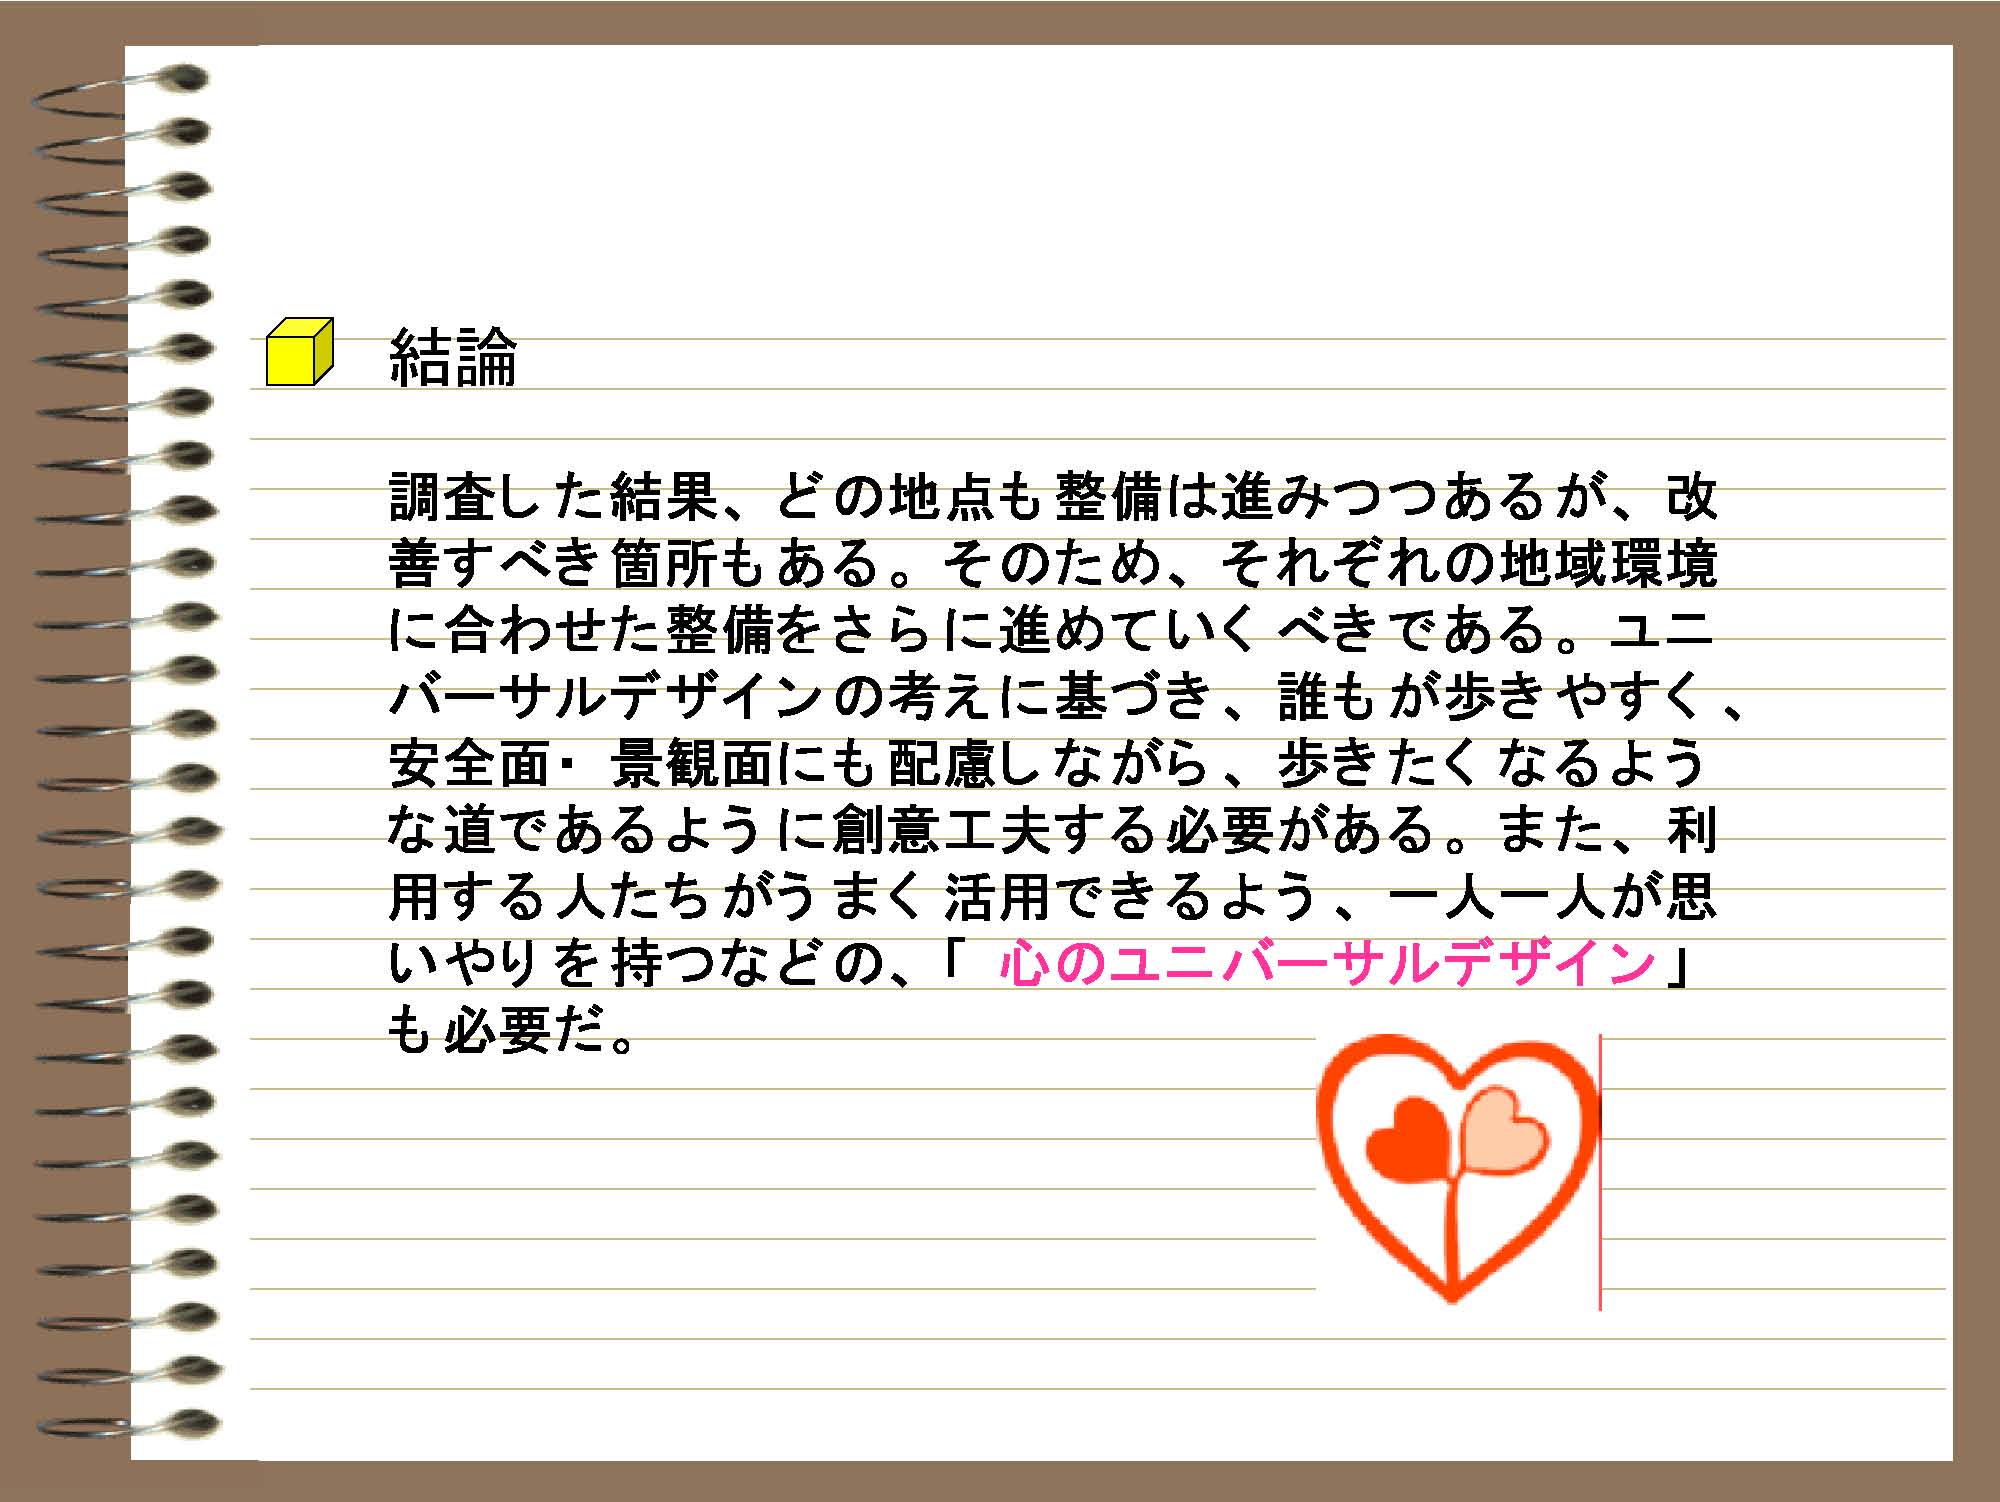 結論
調査した結果、どの地点も整備は進みつつあるが、改
善すべき箇所もある。そのため、それぞれの地域環境
に合わせた整備をさらに進めていくべきである。ユニ
バーサルデザインの考えに基づき、誰もが歩きやすく、
安全面・景観面にも配慮しながら、歩きたくなるよう
な道であるように創意工夫する必要がある。また、利
用する人たちがうまく活用できるよう、一人一人が思
いやりを持つなどの、「心のユニバーサルデザイン」
も必要だ。